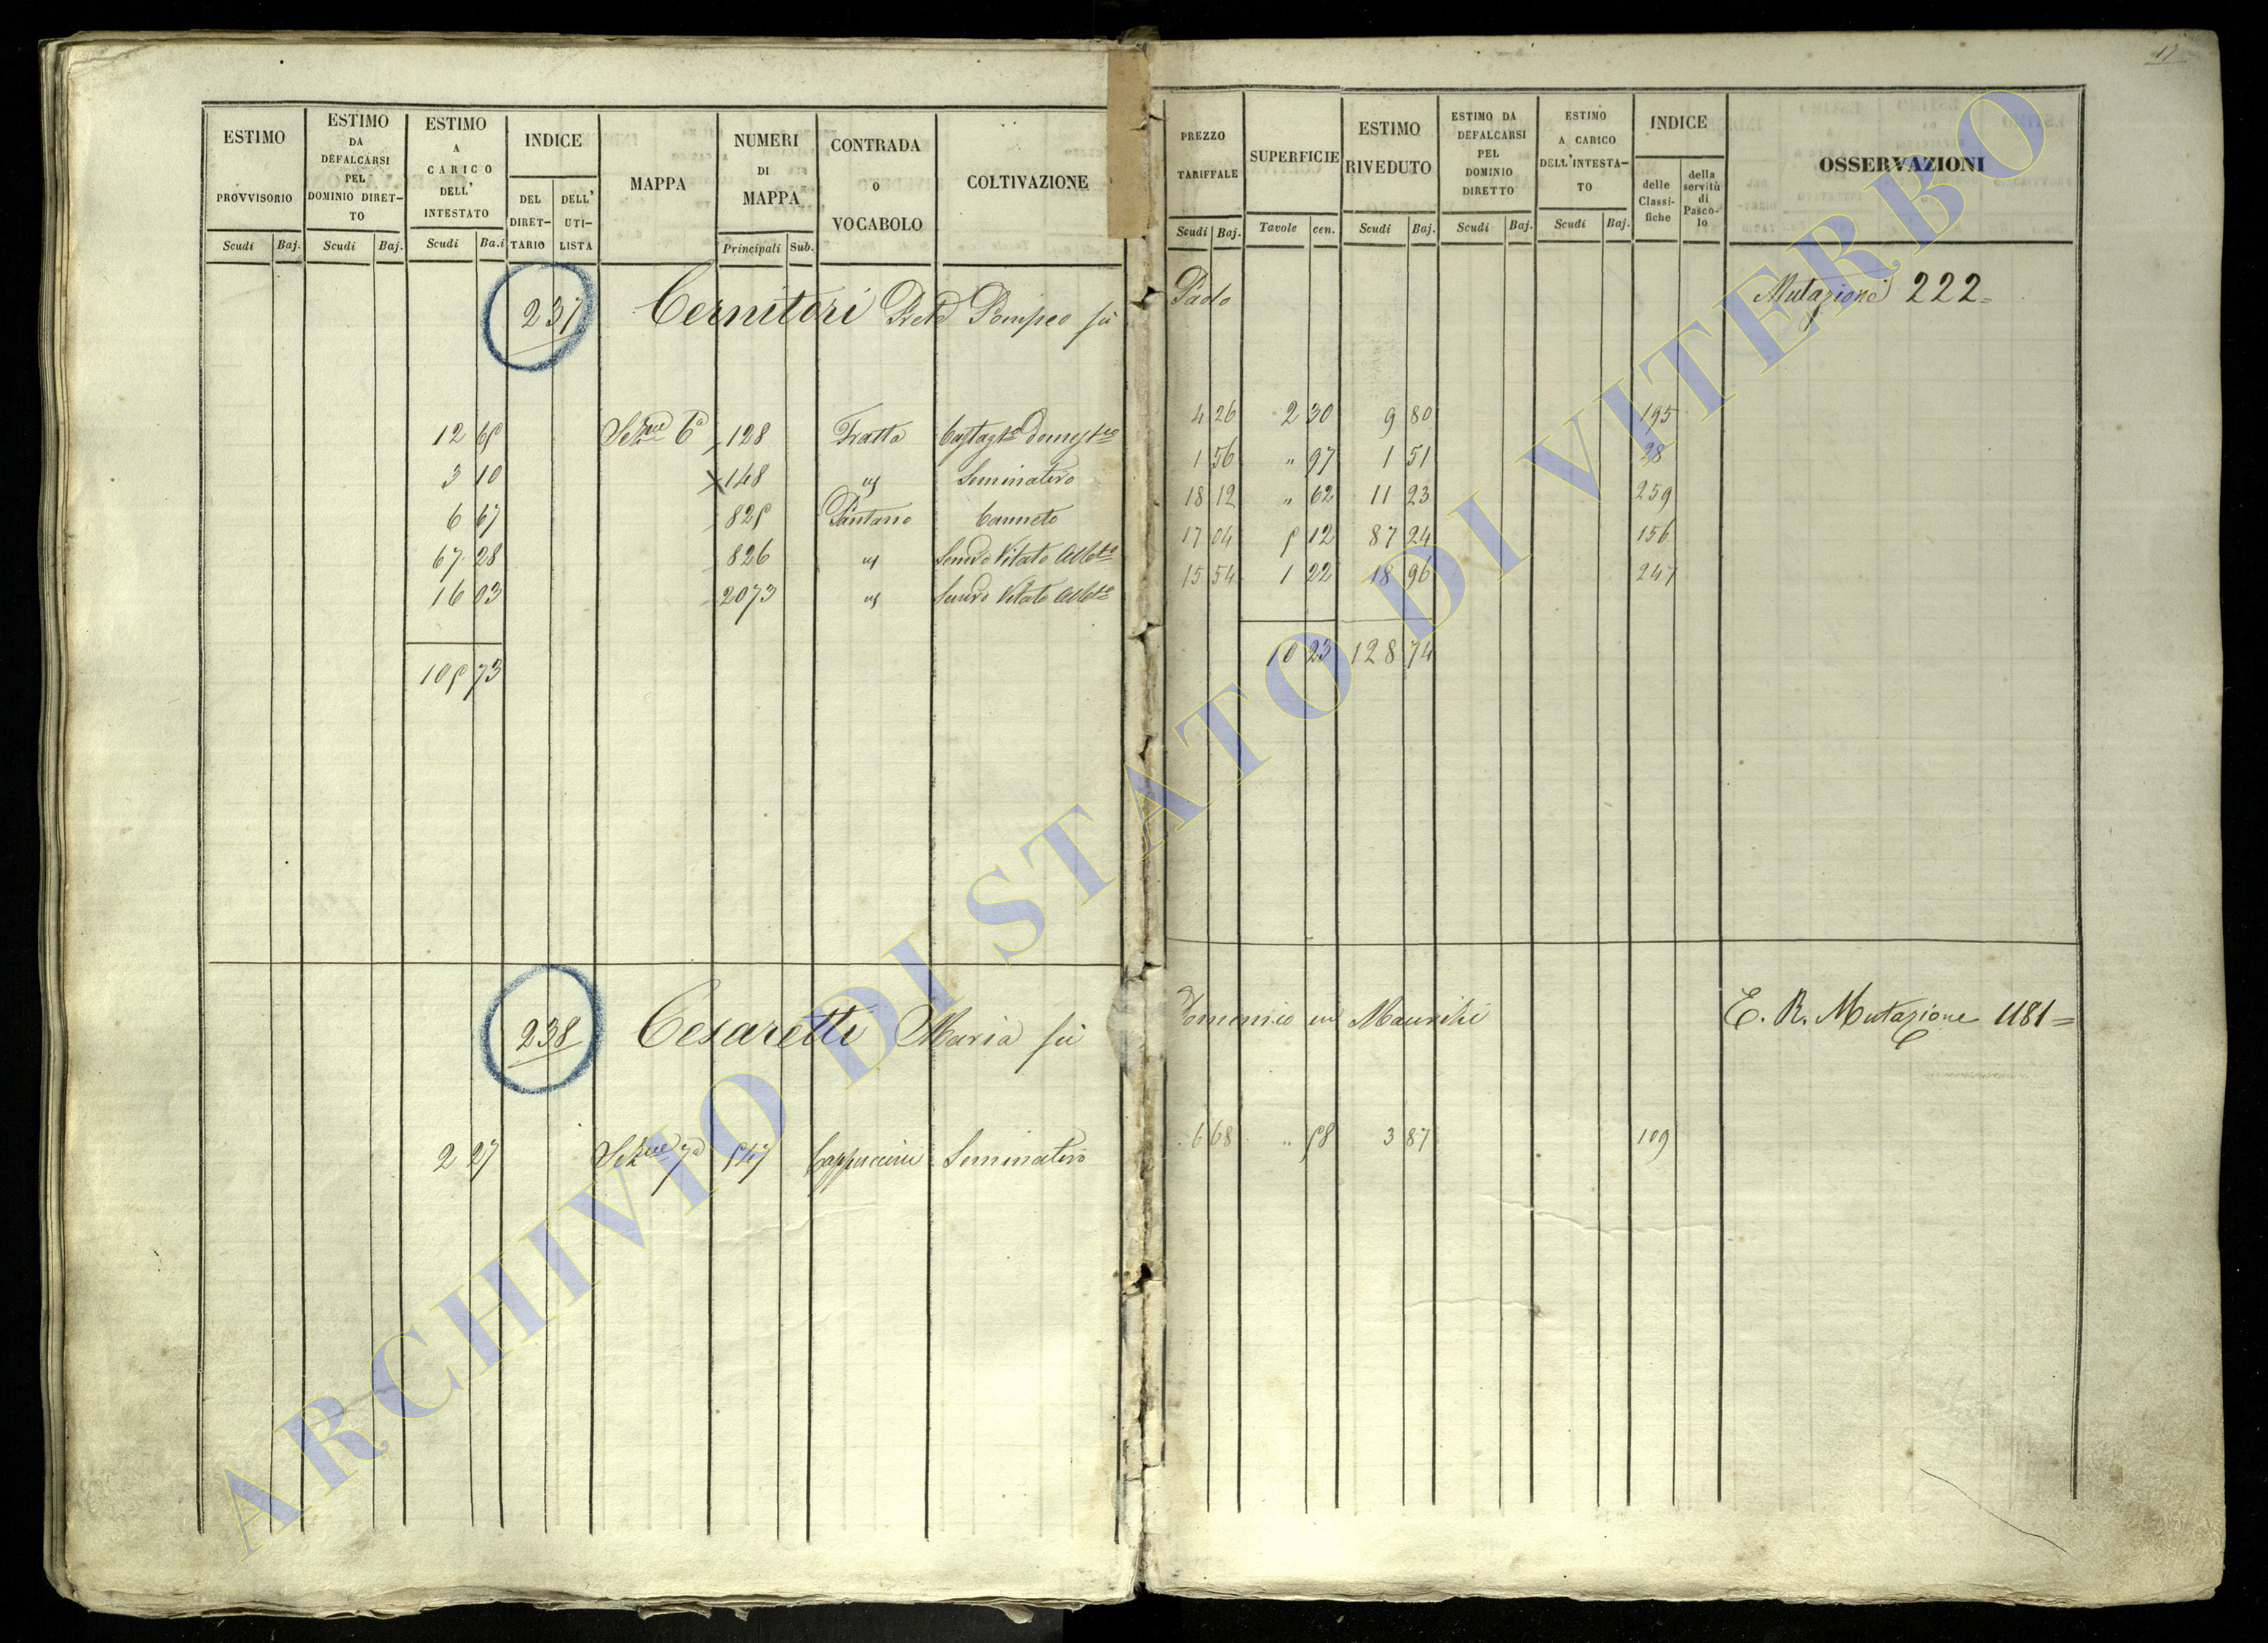 17
ESTIMO PROVVISORIO
ESTIMO DA DEFALCARSI PEL DOMINIO DIRETTO
ESTIMO A CARICO DELL' INTESTATO
INDICE
DEL DIRETTARIO
DELL' UTILISTA
MAPPA
NUMERI DI MAPPA
CONTRADA O VOCABOLO
COLTIVAZIONE
PREZZO TARIFFALE
SUPERFICIE
ESTIMO RIVEDUTO
ESTIMO DA DEFALCARSI PEL DOMINIO DIRETTO
ESTIMO A CARICO DELL'INTESTATO
INDICE
delle Classifiche
della servitù di Pascolo
OSSERVAZIONI
Scudi Baj. Scudi Baj. Scudi Ba.i Principali Sub. Scudi Baj. Tavole cen. Scudi Baj. Scudi Baj. Scudi Baj.
237 Cernitori Pompeo fù Paolo Mutazione 222=
12 65 Sezne 6a 128 Fratta Castagto domestco 4 26 2 30 9 80 195
3 10 148 " Seminativo 1 56 " 97 1 51 28
6 67 825 Pantano Canneto 18 12 " 62 11 23 259
67 28 826 " Semvo Vitato Albto 17 04 5 12 87 24 156
16 03 2073 " Semvo Vitato Albto 15 54 1 22 18 96 247
105 73 10 23 128 74
238 Cesaretti Maria fù Domenico in E. R. Mutazione 1181=
2 27 Sezne 7a 547 Cappuccini Seminativo 6 68 " 58 3 87 109
ARCHIVIO DI STATO DI VITERBO